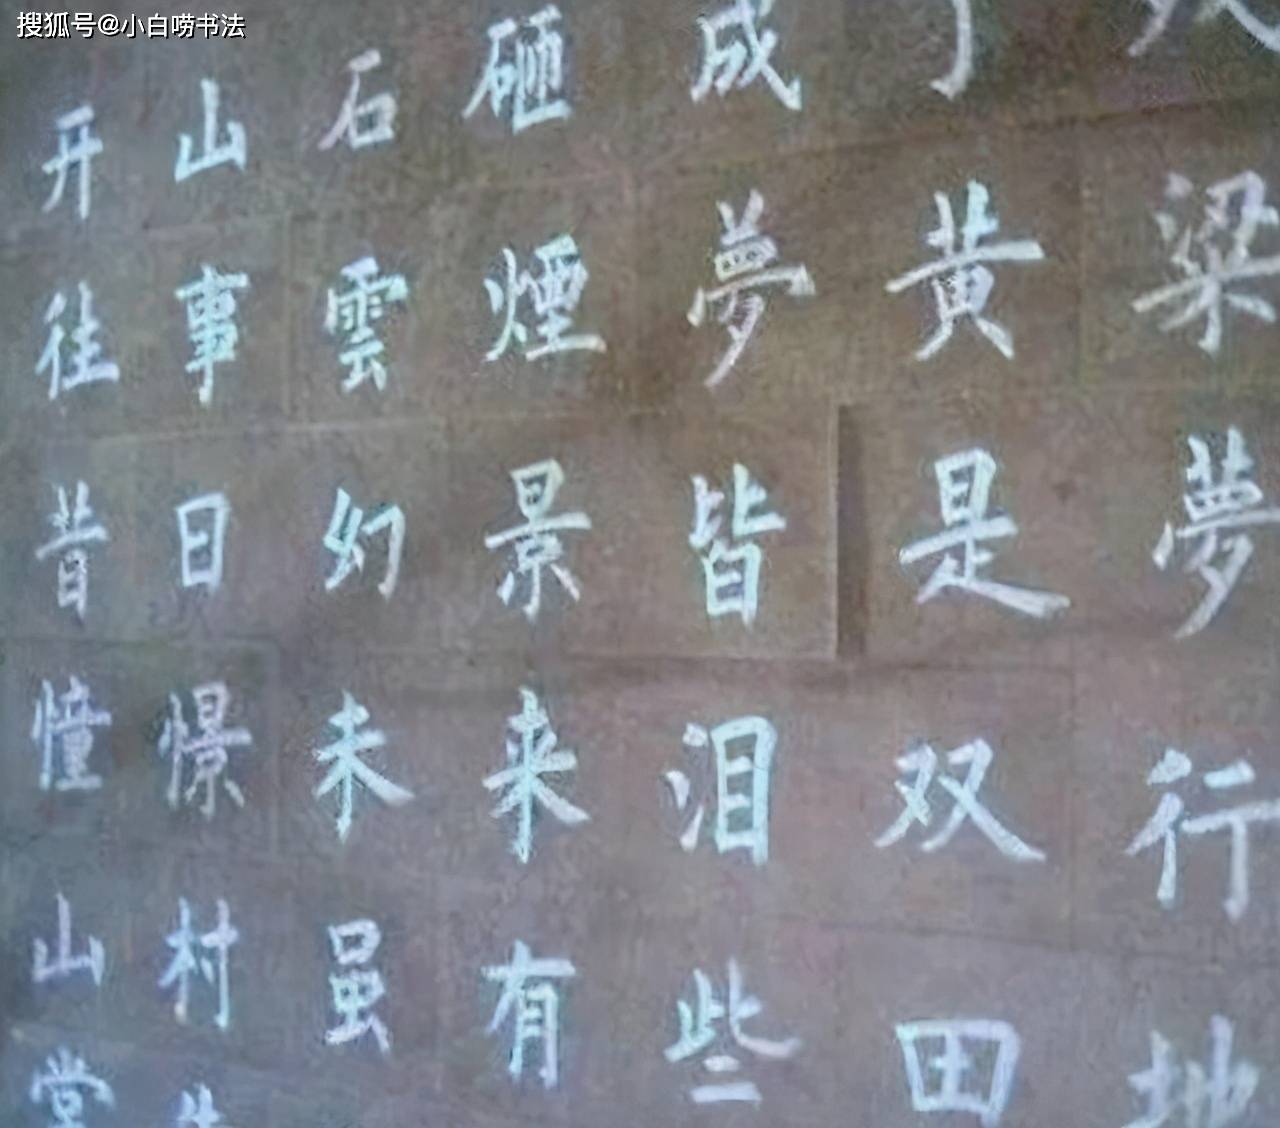 搜狐号@小白唠书法
开山石砸成了
往事雲煙夢黄粱
昔日幻景皆是夢
憧憬未来泪双行
山村虽有些田地